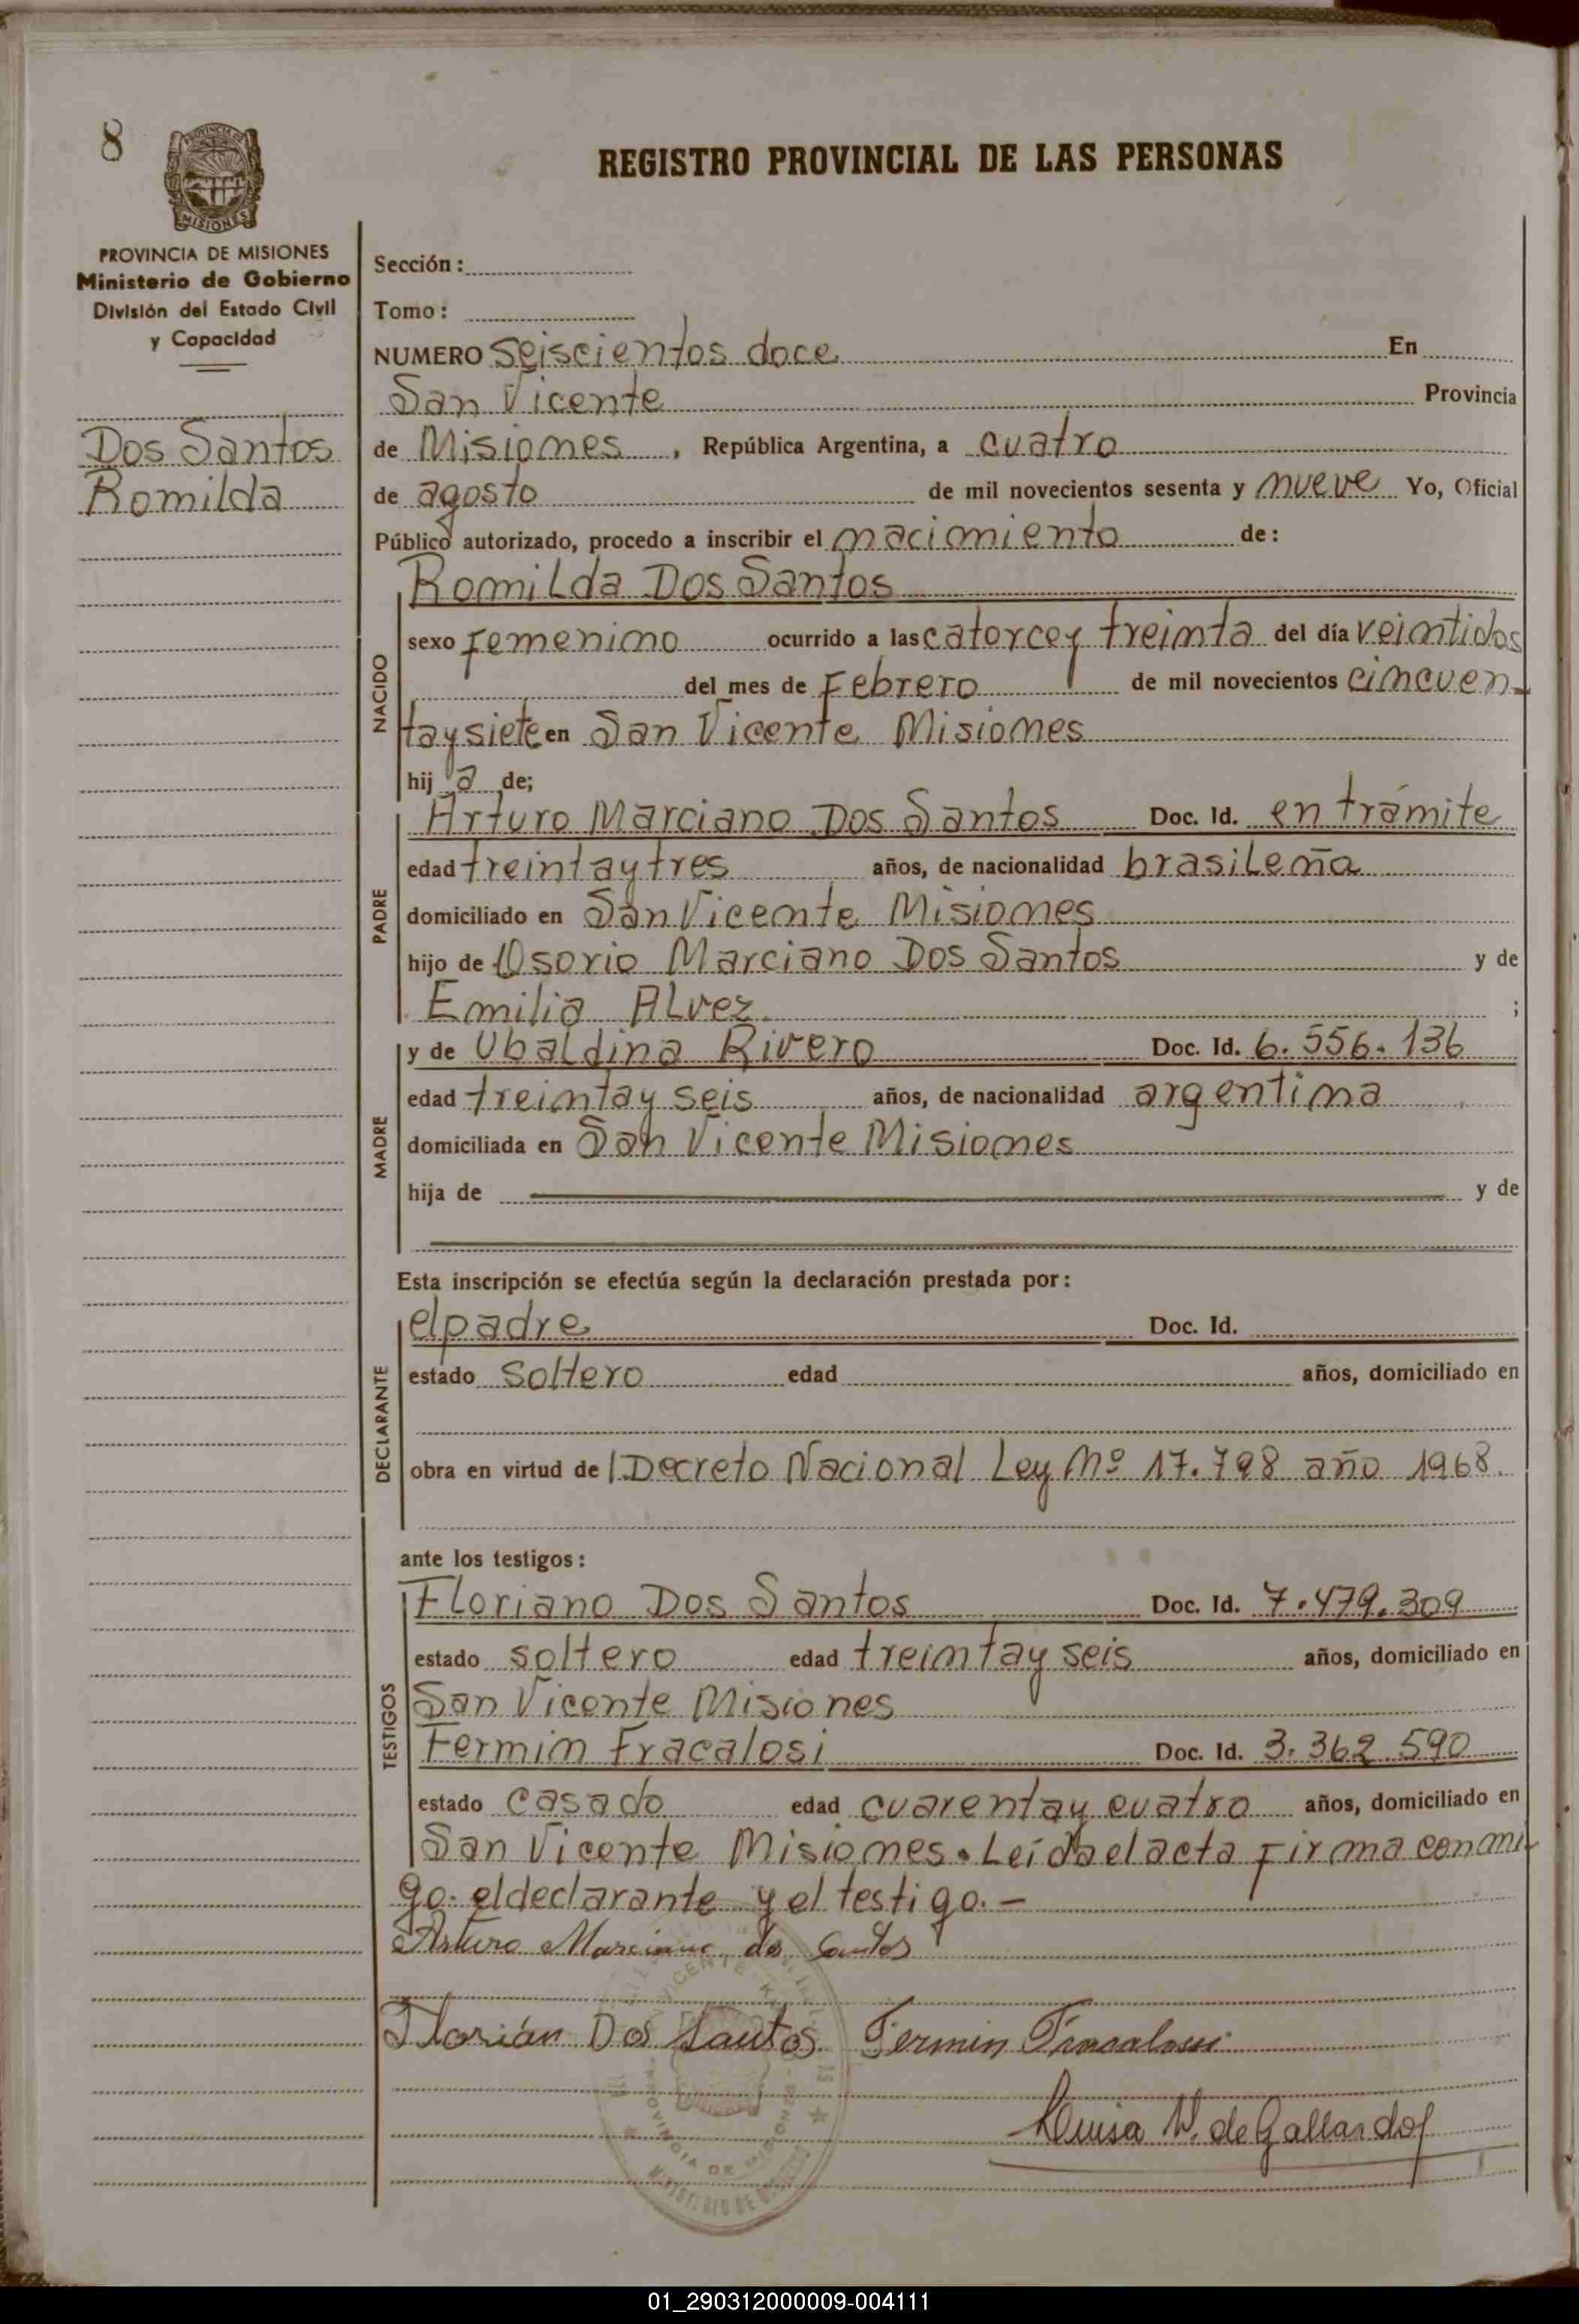 8
PROVINCIA DE MISIONES
REGISTRO PROVINCIAL DE LAS PERSONAS
PROVINCIA DE MISIONES
Ministerio de Gobierno
División del Estado Civil
y Capacidad
Dos Santos
Romilda
Sección:
Tomo:
NUMERO Seiscientos doce En
San Vicente Provincia
de Misiones, República Argentina, a cuatro
de agosto de mil novecientos sesenta y nueve Yo, Oficial
Público autorizado, procedo a inscribir el nacimiento de:
NACIDO
Romilda Dos Santos
sexo Femenino ocurrido a las catorce y treinta del día veintidos
del mes de Febrero de mil novecientos cincuen-
taysiete en San Vicente Misiones
hij a de;
PADRE
Arturo Marciano Dos Santos Doc. Id. en trámite
edad treintaytres años, de nacionalidad brasileña
domiciliado en San Vicente Misiones
hijo de Osorio Marciano Dos Santos y de
Emilia Alvez ;
MADRE
y de Ubaldina Rivero Doc. Id. 6.556.136
edad treintay seis años, de nacionalidad argentina
domiciliada en San Vicente Misiones
hija de y de
Esta inscripción se efectúa según la declaración prestada por:
DECLARANTE
el padre Doc. Id.
estado Soltero edad años, domiciliado en
obra en virtud de l Decreto Nacional Ley Nº 17.798 año 1968.
ante los testigos:
TESTIGOS
Floriano Dos Santos Doc. Id. 7.479.309
estado soltero edad treintay seis años, domiciliado en
San Vicente Misiones
Fermin Fracalosi Doc. Id. 3.362.590
estado casado edad cuarentay cuatro años, domiciliado en
San Vicente Misiones. Leída el acta Firma con mi-
go. el declarante y el testigo.-
Arturo Marciano dos Santos
Florián Dos Santos Fermin Fracalossi
Luisa W. de Gallardo
01_290312000009-004111